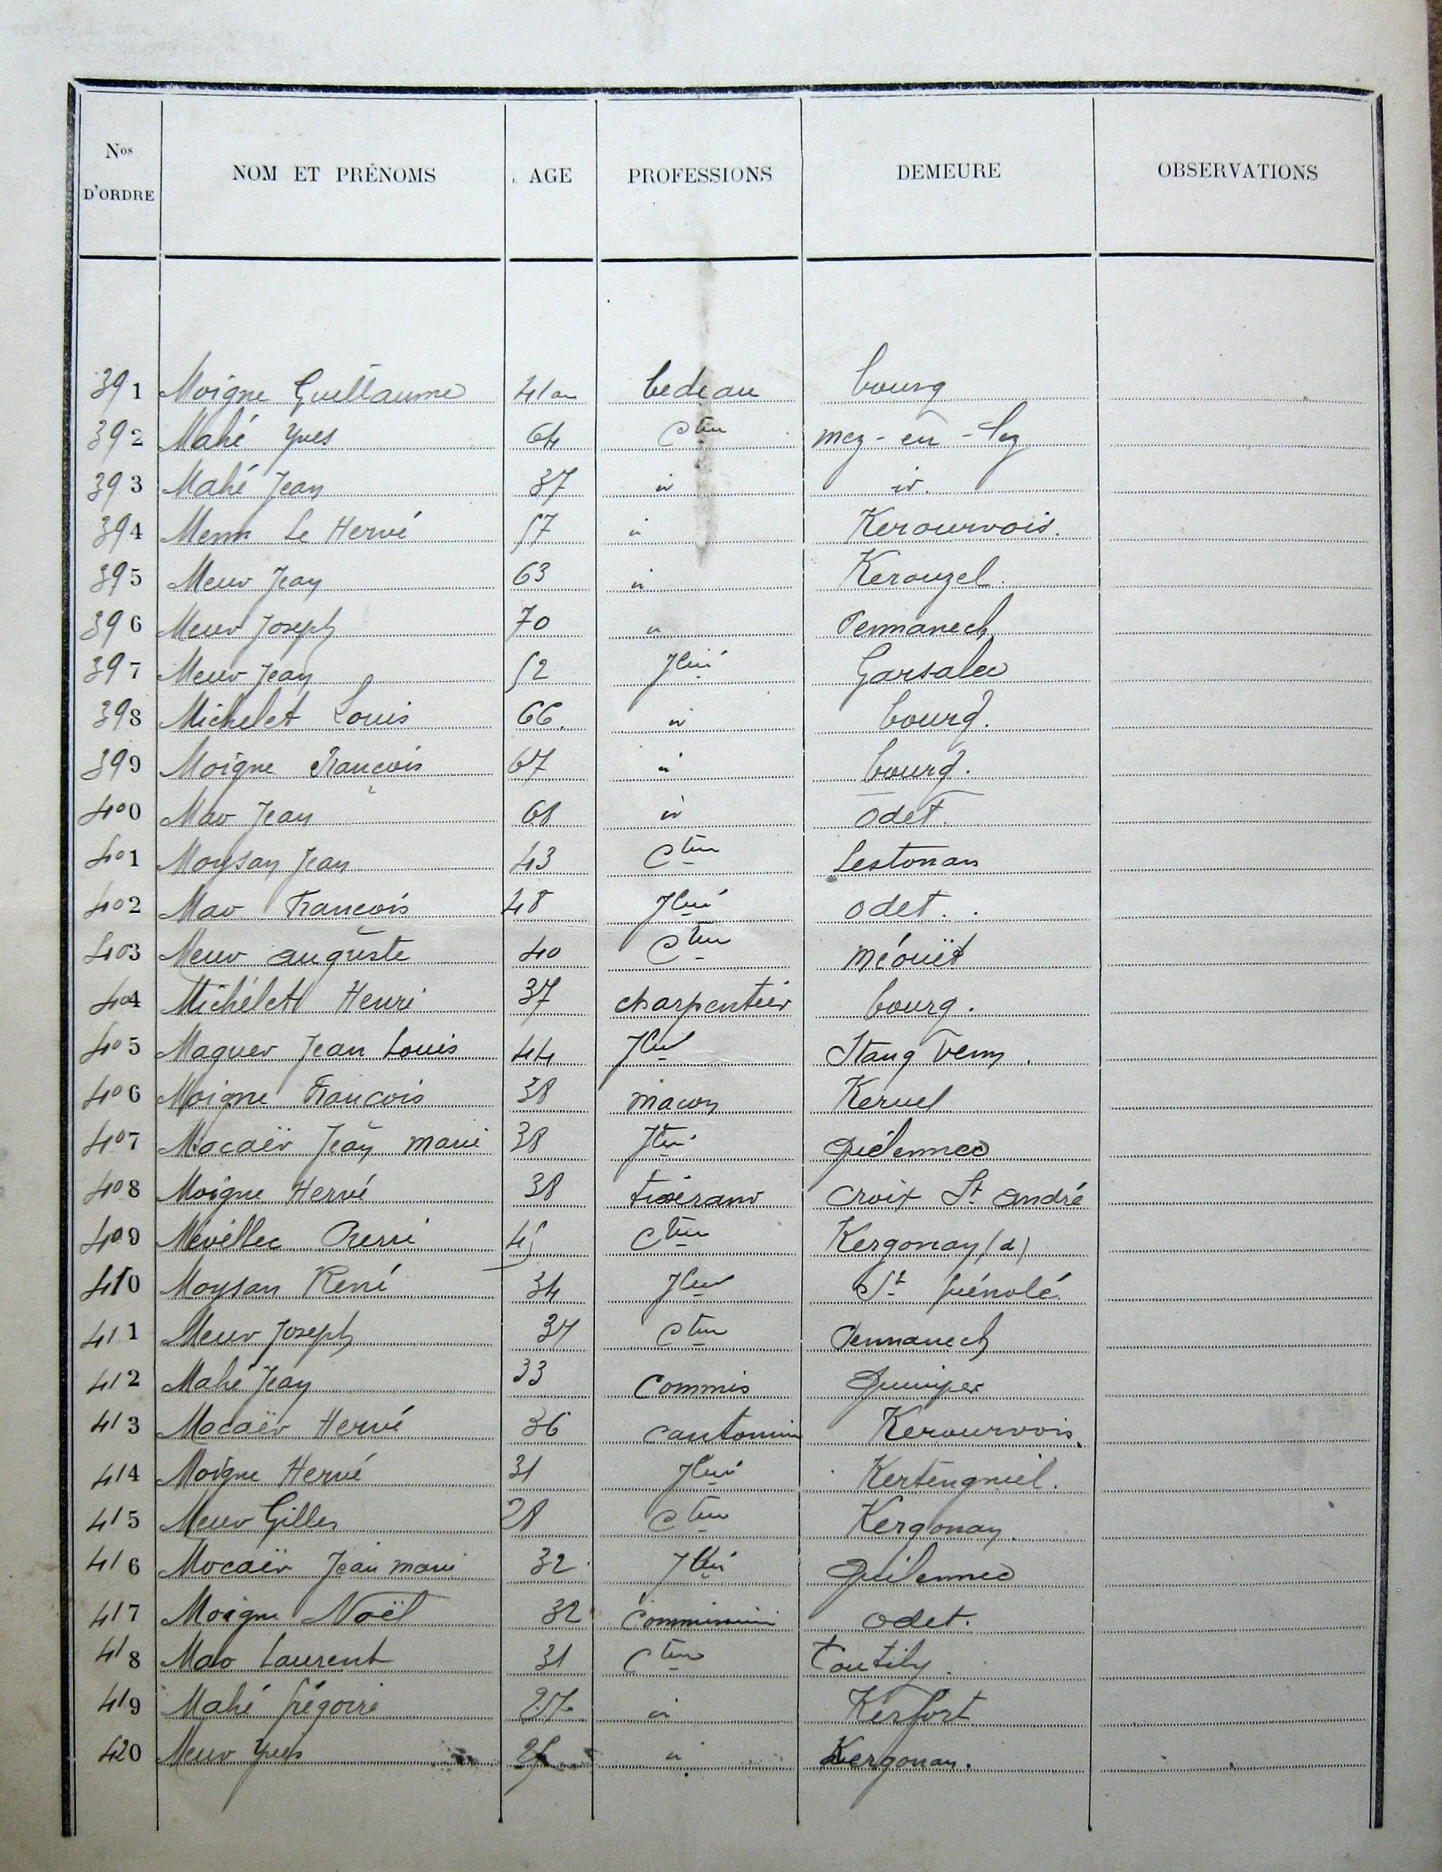 Nos D'ORDRE NOM ET PRÉNOMS AGE PROFESSIONS DEMEURE OBSERVATIONS
391 Moigne Guillaume 41 an bedeau bourg
392 Mahé Yves 64 Cteur mez-en-lez
393 Mahé Jean 37 id id.
394 Menn Le Hervé 57 id Kerourvois.
395 Meur Jean 63 id Kerouzel.
396 Meur Joseph 70 id Pennanech
397 Meur Jean 52 Jlier Garsalec
398 Michelet Louis 66. id bourg.
399 Moigne François 67 id bourg.
400 Mao Jean 61 id Odet.
401 Moysan Jean 43 Cteur Lestonan
402 Mao François 48 Jlier Odet.
403 Meur auguste 40 Cteur méouët
404 Michélet Henri 37 charpentier bourg.
405 Maguer Jean Louis 44 Jlier Stang Venn.
406 Moigne François 38 maçon Keruel
407 Mocaër Jean marie 38 Jlier Quélennec
408 Moigne Hervé 38 tisserand Croix St andré
409 Mévellec Pierre 45 Cteur Kergonay (d)
410 Moysan René 34 Jlier St Guénolé.
411 Meur Joseph 37 Cteur Pennanech
412 Mahé Jean 33 Commis Quimper
413 Mocaër Hervé 36 cantonnier Kerourvois.
414 Moigne Hervé 31 Jlier
415 Meur Gilles 28 Cteur Kergonay.
416 Mocaër Jean marie 32 Jlier Quilennec
417 Moigne Noël 32 Odet.
418 Mao Laurent 31 Cteur Toutily.
419 Mahé Grégoire 27 id Kerfort
420 Meur Yves 25 id Kergonan.